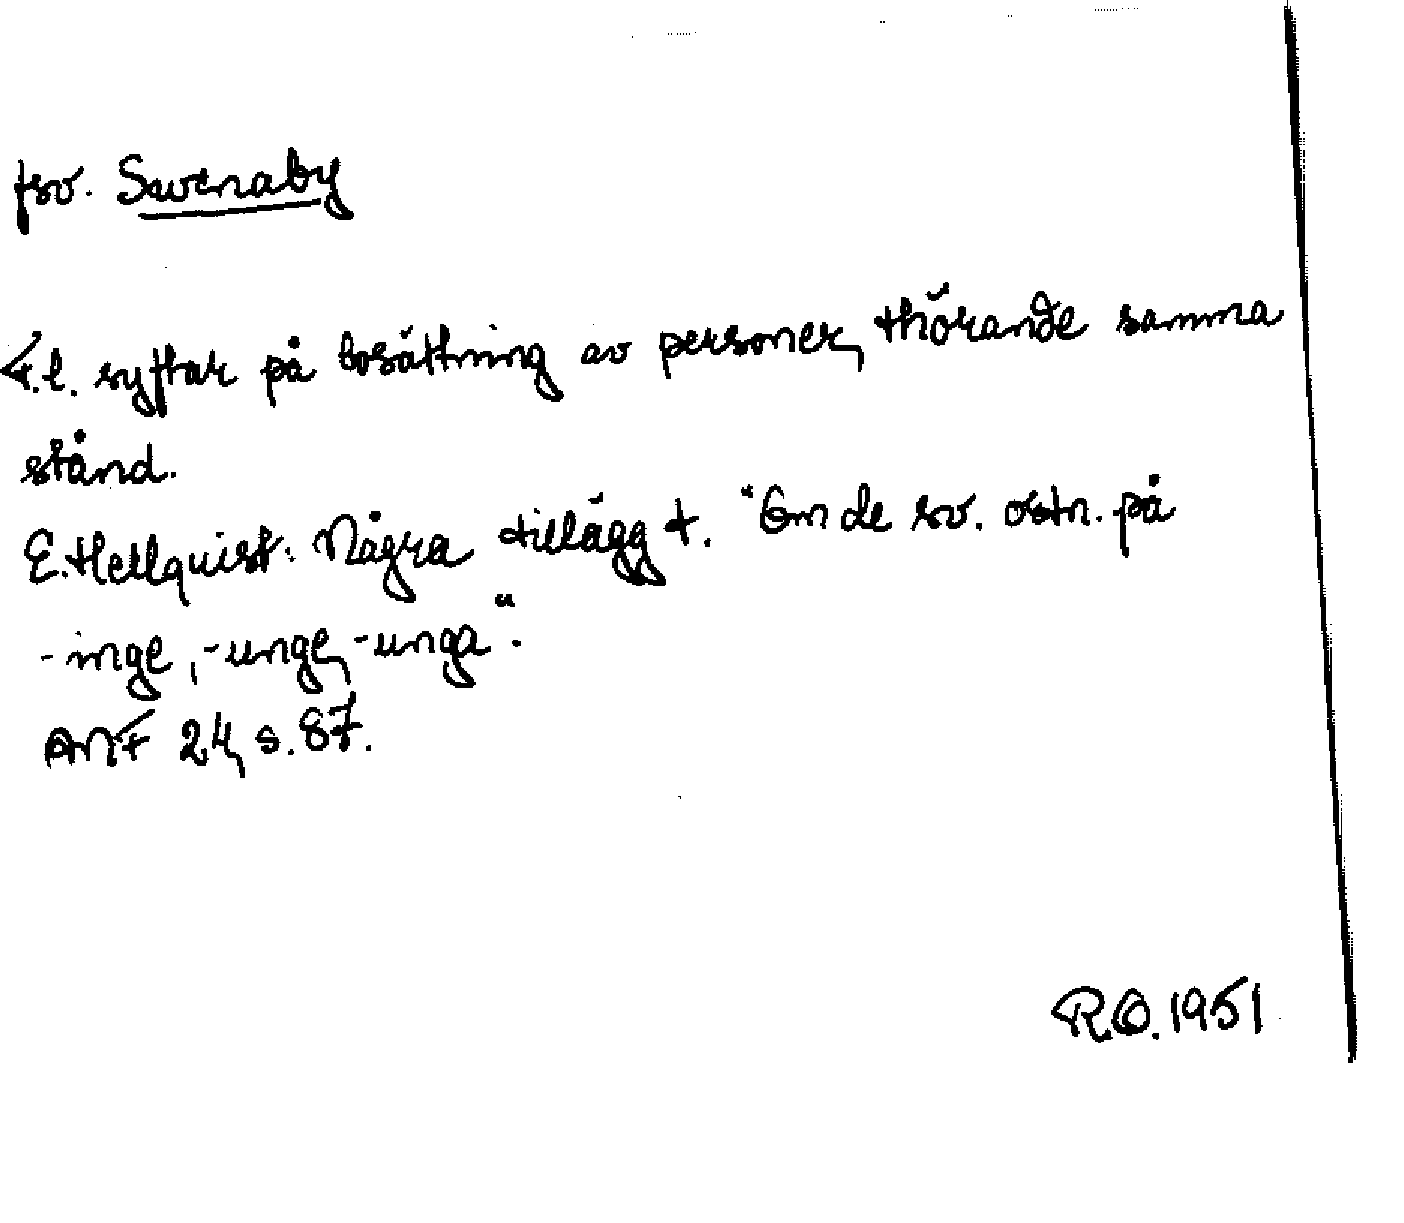 fsv. Swenaby
F.l. syftar på bosättning av personer, thörande samma
stånd.
E. Hellquist: Några tillägg t. "Om de sv. ostn. på
-inge, -unge, -unga".
ANF 24, s. 87.
R.O. 1951